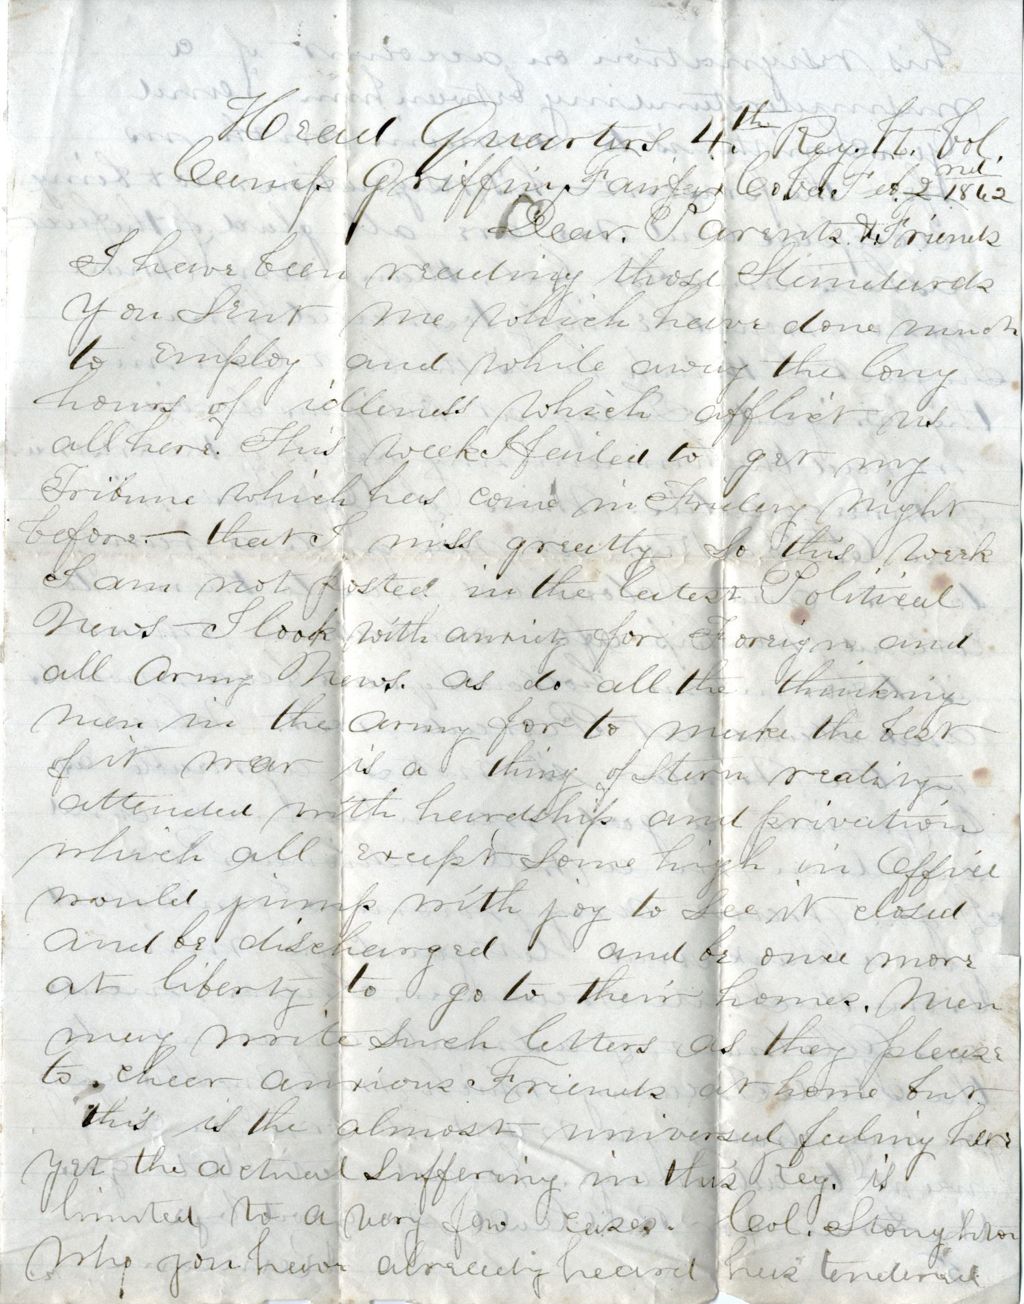 Head Quarters 4.th Reg. Vt. Vol.
Camp Griffin, Fairfax Co. Va. Feb. 2nd 1862
Dear. Parents. & Friends
I have been reading those Standards
you sent me which have done much
to employ and while away the long
hours of idleness which afflict us
all here. This week I failed to get my
Tribune which has come in Friday night
before — that I miss greatly so this week
I am not posted in the latest Political
News — I look with anxiety for Foreign and
all Army News. as do all the thinking
men in the army for to make the best
of it war is a thing of stern reality
attended with hardship and privation
which all except some high in Office
would jump with joy to see it closed
and be discharged and be once more
at liberty to go to their homes. Men
may write such letters as they please
to cheer anxious Friends at home but
this is the almost universal feeling here
yet the actual suffering in this Reg. is
limited to a very few cases. Col. Stoughton
who you have already heard has tendered